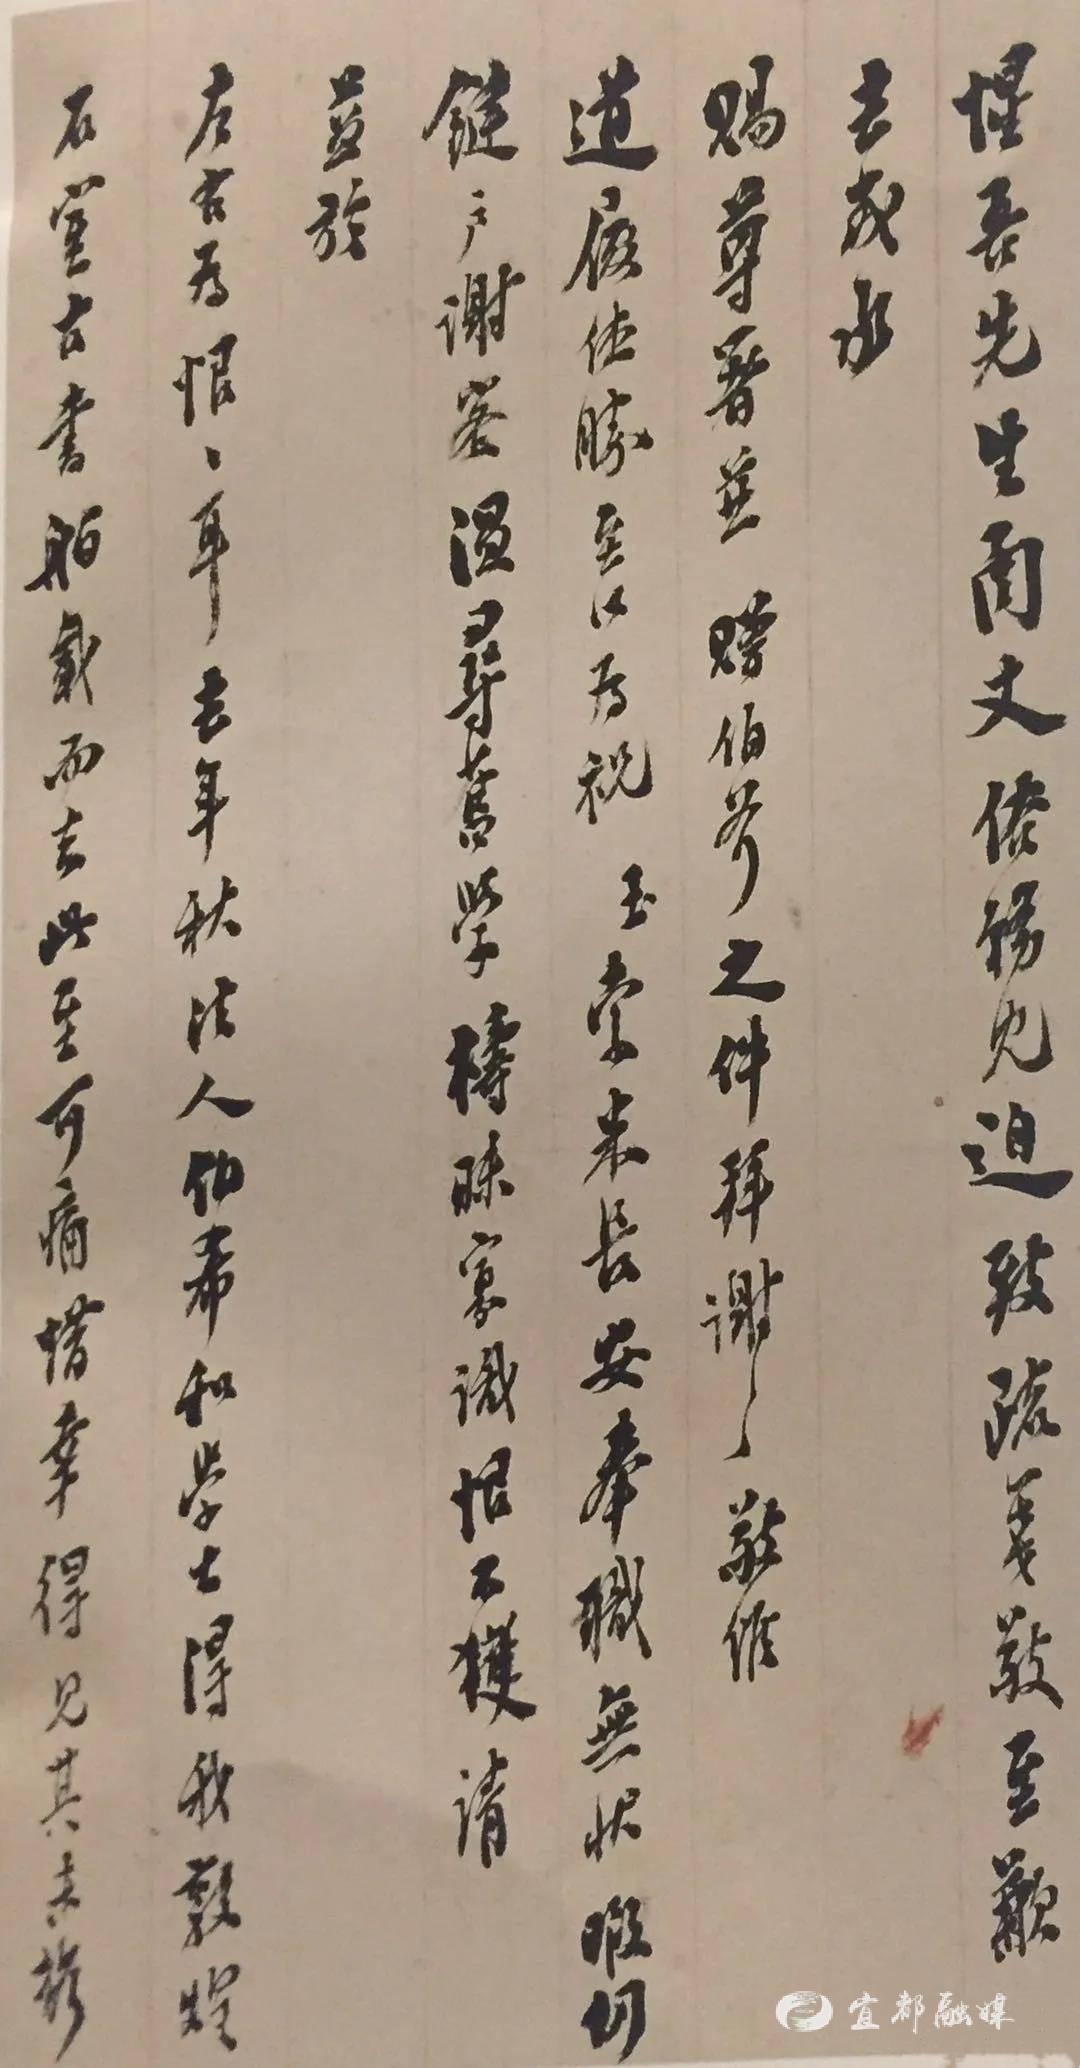 惺吾先生函丈俗務兒迫致疏箋敬至歉
去歲承
賜尊著並贈伯斧之件拜謝〻敬惟
道履佳勝至以為祝玉索米長安奉職無狀暇仍
鍵戶謝客溫尋舊學檮昧寡識恨不獲請
益於
左右為恨〻耳去年秋法人伯希和學士得我敦煌
石室古書舶載而去此至可痛惜幸得見其未携
宜都融媒